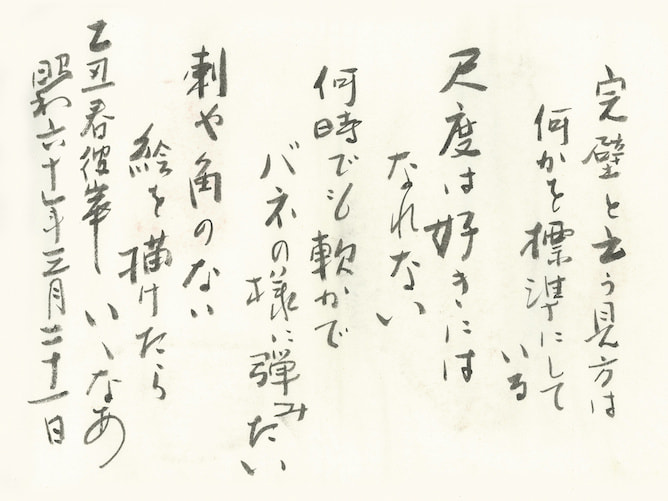 完璧と云う見方は
何かを標準にして
いる
尺度は好きには
なれない
何時でも軟かで
バネの様に弾みたい
刺や角のない
絵を描けたら
いゝなあ
乙丑春彼岸
昭和六十年三月二十一日